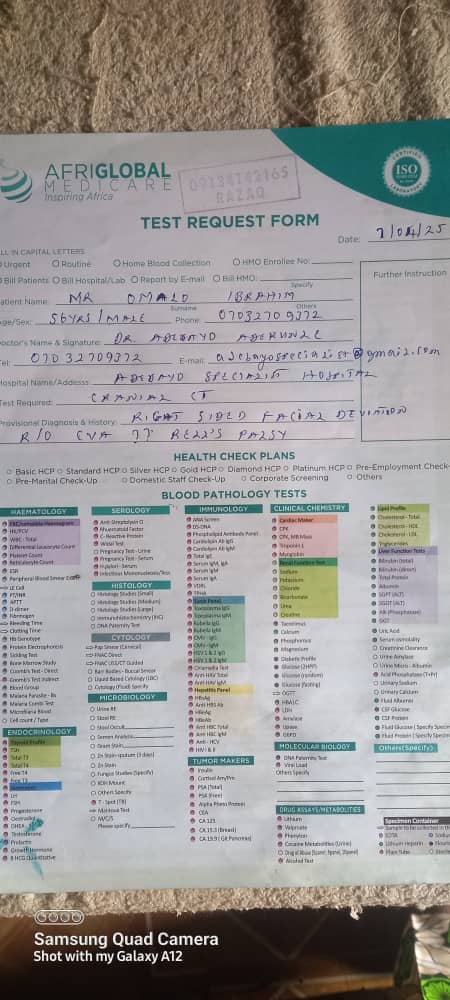 AFRIGLOBAL
MEDICARE
Inspiring Africa
09134142165
RAZAQ
CERTIFIED
ISO
LABORATORY
TEST REQUEST FORM
Date: 7/04/25
LL IN CAPITAL LETTERS
Urgent O Routine O Home Blood Collection O HMO Enrollee No:
Bill Patients O Bill Hospital/Lab O Report by E-mail O Bill HMO:
Specify
Further Instruction
atient Name: MR OMALO IBRAHIM
Surname Others
ge/Sex: 56YRS/MALE Phone: 07032709372
octor's Name & Signature: DR. ADEBAYO
el: 07032709372 E-mail: adebayospecialist@gmail.com
ospital Name/Address ADEBAYO SPECIALIST HOSPITAL
est Required: CRANIAL CT
rovisional Diagnosis & History: RIGHT SIDED FACIAL DEVIATION
R/O CVA ?? BELL'S PALSY
HEALTH CHECK PLANS
O Basic HCP O Standard HCP O Silver HCP O Gold HCP O Diamond HCP O Platinum HCP O Pre-Employment Check-
O Pre-Marital Check-Up O Domestic Staff Check-Up O Corporate Screening O Others
BLOOD PATHOLOGY TESTS
HAEMATOLOGY
HB/PCV
WBC - Total
Differential Leucocyte Count
Platelet Count
Reticulocyte Count
ESR
Peripheral Blood Smear
LE Cell
PT/INR
APTT
D-dimer
Fibrinogen
Bleeding Time
Clotting Time
Hb Genotype
Protein Electrophoresis
Sickling Test
Bone Marrow Study
Coomb's Test - Direct
Coomb's Test Indirect
Blood Group
Malaria Parasite - Bs
Malaria Comb Test
Microfilaria Blood
Cell count / Type
ENDOCRINOLOGY
Thyroid Profile
TSH
Total T3
Total T4
Free T4
Free T3
LH
FSH
Progesterone
Oestradiol
DHEA
Testosterone
Prolactin
Growth Hormone
B HCG Quantitative
SEROLOGY
Anti-Streptolysin O
Rhuematoid Factor
C-Reactive Protein
Widal Test
Pregnancy Test - Urine
Pregnancy Test - Serum
H.pylori - Serum
Infectious Mononucleosis/Test
HISTOLOGY
Histology Studies (Small)
Histology Studies (Medium)
Histology Studies (Large)
Immunohistochemistry (IHC)
DNA Paternity Test
CYTOLOGY
Pap Smear (Cervical)
FNAC Direct
FNAC US/CT Guided
Barr Bodies - Buccal Smear
Liquid Based Cytology (LBC)
Cytology (Fluid) Specify
MICROBIOLOGY
Urine RE
Stool RE
Stool Occult
Semen Analysis
Gram Stain
Zn Stain-sputum (3 days)
Zn Stain
Fungus Studies (Specify)
KOH Mount
Others Specify
T - Spot (TB)
Mantoux Test
M/C/S
Please specify
IMMUNOLOGY
ANA Screen
DS-DNA
Phospholipid Antibody Panel
Cardiolipin Ab IgG
Cardiolipin Ab IgM
Total IgE
Serum IgM, IgA
Serum IgA
Serum IgM
VDRL
Torch Panel
Toxoplasma IgG
Toxoplasma IgM
Rubella IgG
Rubella IgM
CMV - IgG
CMV - IgM
HSV 1 & 2 IgG
HSV 1 & 2 IgM
Chlamydia Test
Anti HAV Total
Anti HAV IgM
Hepatitis Panel
HBsAg
Anti HBS Ab
HBeAg
HBeAb
Anti HBC Total
Anti HBC IgM
Anti - HCV
HIV I & II
TUMOR MAKERS
Insulin
Cortisol Am/Pm
PSA (Total)
PSA (Free)
Alpha Pheto Protein
CEA
CA 125
CA 15.3 (Breast)
CA 19.9 ( Git Pancreas)
CLINICAL CHEMISTRY
Cardiac Maker
CPK
CPK, MB Mass
Troponin I
Myoglobin
Renal Function Test
Sodium
Potassium
Chloride
Bicarbonate
Urea
Creatine
Tacrolimus
Calcium
Phosphorous
Magnesium
Diabetic Profile
Glucose (2HPP)
Glucose (random)
Glucose (fasting)
OGTT
HBA1C
LDH
Amylase
Lipase
G6PD
MOLECULAR BIOLOGY
DNA Paternity Test
Viral Load
Others Specify
DRUG ASSAYS/METABOLITIES
Lithium
Valproate
Phenytoin
Cocaine Metabolities (Urine)
Drug of Abuse (5panel, 9panel, 10panel)
Alcohol Test
Lipid Profile
Cholesterol - Total
Cholesterol - HDL
Cholesterol - LDL
Triglycerides
Liver Function Tests
Bilirubin (total)
Bilirubin (direct)
Total Protein
Albumin
SGPT (ALT)
SGOT (AST)
Alk (Phosphatase)
GGT
Uric Acid
Serum osmolality
Creatinine Clearance
Urine Amylase
Urine Micro - Albumin
Acid Phosphatase (T+Pr)
Urinary Sodium
Urinary Calcium
Fluid Albumin
CSF Glucose
CSF Protein
Fluid Glucose ( Specify Specim
Fluid Protein ( Specify Specim
Others(Specify)
Specimen Container
Sample to be collected in th
EDTA
Lithium Heparin
Plain Tube
Samsung Quad Camera
Shot with my Galaxy A12